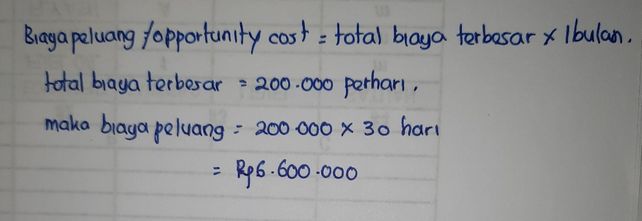 Biaya peluang /opportunity cost = total biaya terbesar × 1 bulan.
total biaya terbesar = 200.000 perhari.
maka biaya peluang = 200.000 × 30 hari
= Rp6.600.000